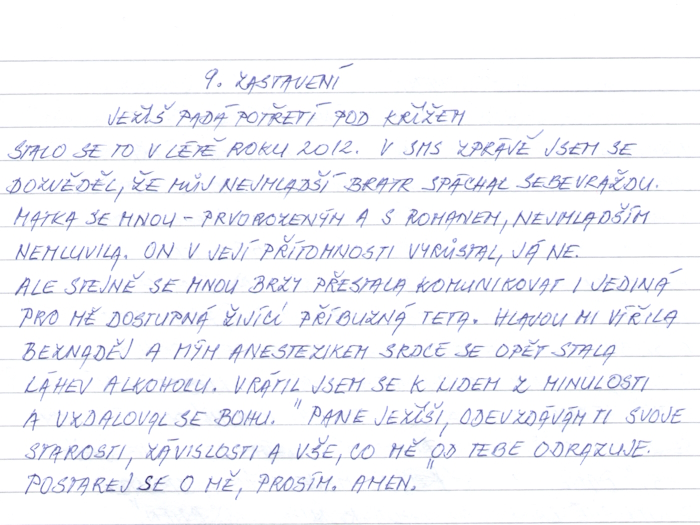 9. ZASTAVENÍ
JEŽÍŠ PADÁ POTŘETÍ POD KŘÍŽEM
STALO SE TO V LÉTĚ ROKU 2012. V SMS ZPRÁVĚ JSEM SE
DOZVĚDĚL, ŽE MŮJ NEJMLADŠÍ BRATR SPÁCHAL SEBEVRAŽDU.
MATKA SE MNOU - PRVOROZENÝM A S ROMANEM, NEJMLADŠÍM
NEMLUVILA. ON V JEJÍ PŘÍTOMNOSTI VYRŮSTAL, JÁ NE.
ALE STEJNĚ SE MNOU BRZY PŘESTALA KOMUNIKOVAT I JEDINÁ
PRO MĚ DOSTUPNÁ ŽIJÍCÍ PŘÍBUZNÁ TETA. HLAVOU MI VÍŘILA
BEZNADĚJ A MÝM ANESTEZIKEM SRDCE SE OPĚT STALA
LÁHEV ALKOHOLU. VRÁTIL JSEM SE K LIDEM Z MINULOSTI
A VZDALOVAL SE BOHU. "PANE JEŽÍŠI, ODEVZDÁVÁM TI SVOJE
STAROSTI, ZÁVISLOSTI A VŠE, CO MĚ OD TEBE ODRAZUJE.
POSTAREJ SE O MĚ, PROSÍM. AMEN."